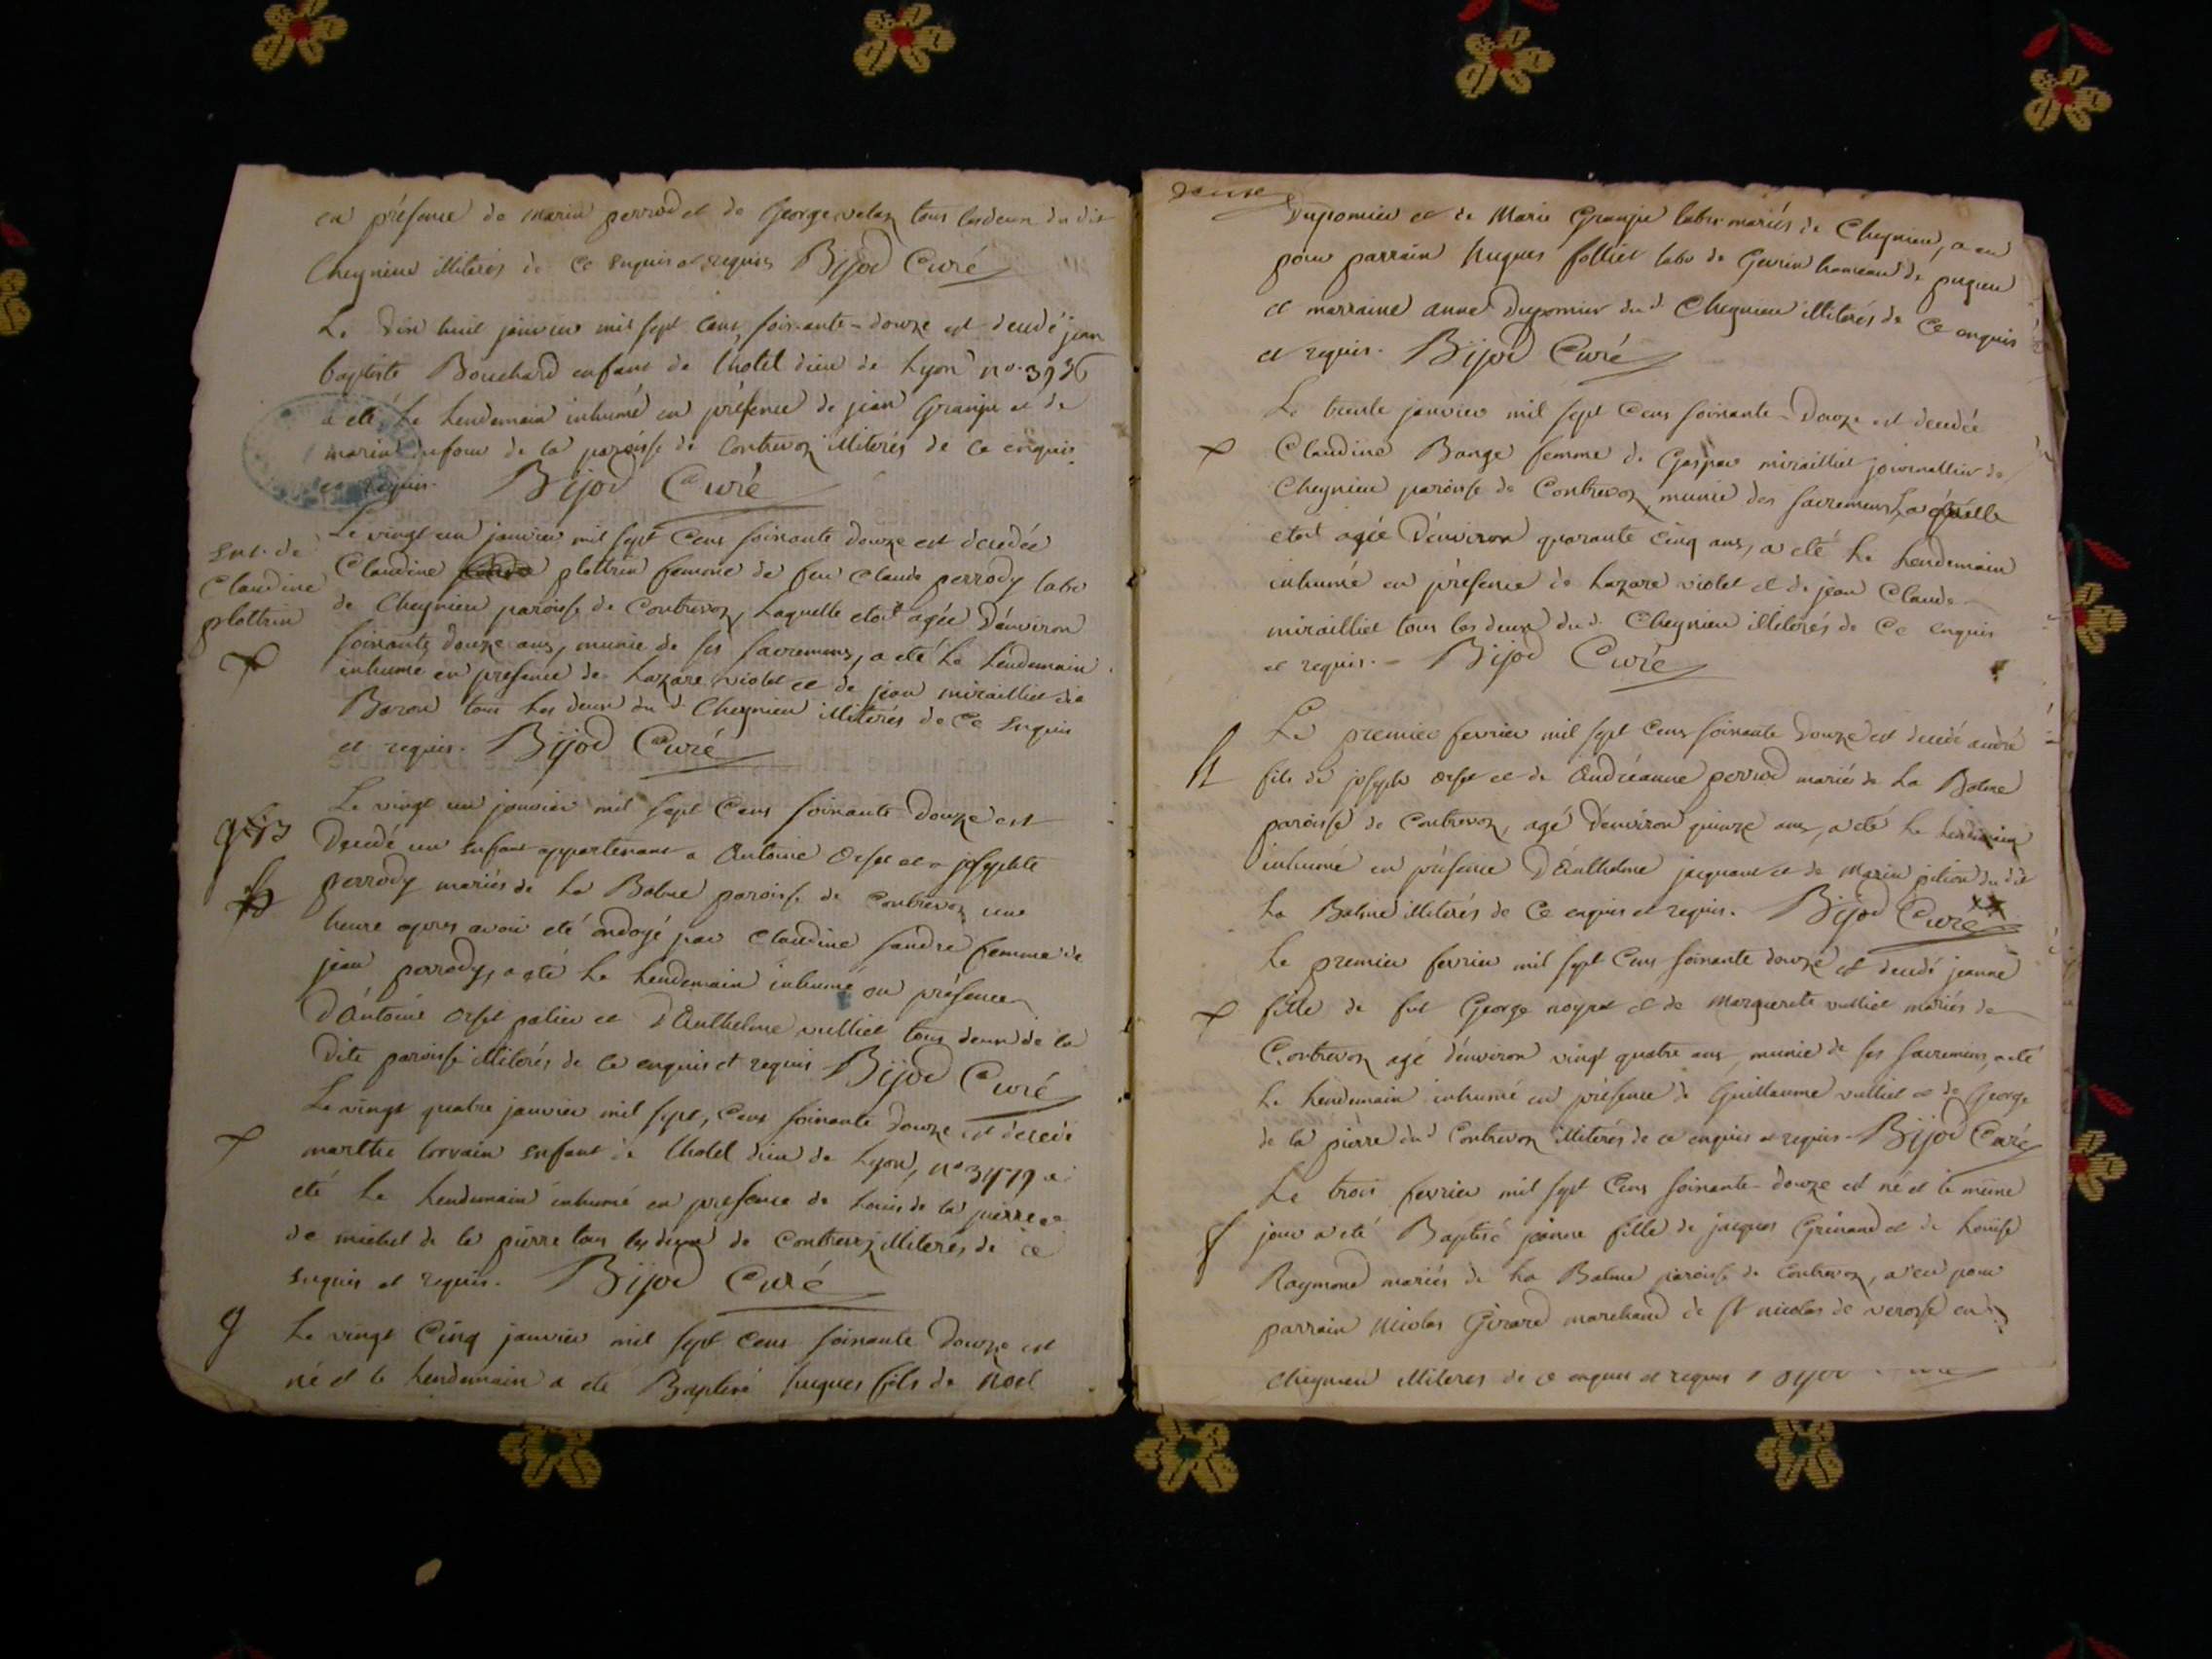 en présence de marin perrod et de George velaz tous lesdeux du dit
Cheynieu illiterés de ce enquis et requis Bijod Curé
Le dix huit janvier mil sept cens soixante-douze est decedé jean
baptiste Bouchard enfant de lhotel dieu de Lyon no.
a eté le lendemain inhumé en présence de jean Granju et de
marin dufour de la paroisse de Contrevoz illiterés de ce enquis
et requis. Bijod Curé
Le vingt un janvier mil sept Cens soixante douze est decedée
Ent. de
Claudine
plottin
Claudine plottin femme de feu Claude perrody labr
de Cheynieu paroisse de Contrevoz, Laquelle etoit agée d'environ
soixante douze ans, munie de ses sacremens, a eté le lendemain
inhumé en présence de Lazare violet et de jean mirailliet dit
Baron tous les deux du d. Cheynieu illiterés de Ce enquis
et requis. Bijod Curé
Le vingt un janvier mil sept Cens soixante-douze est
Decedé un enfant appartenant a Antoine Orset et a josephte
perrody mariés de La Balme paroisse de Contrevoz une
heure apres avoir eté ondoyé par Claudine fandre femme de
jean perrody, a eté Le Lendemain inhumé en présence
d'Antoine Orset et d'Anthelme vulliet tous deux de la
dite paroisse illiterés de ce enquis et requis Bijod Curé
Le vingt quatre janvier mil sept, Cens soixante douze est decedé
marthe lorrain enfant de lhotel dieu de Lyon, no a
eté Le Lendemain inhumé en présence de Louis de la pierre et
de michel de la pierre tous les deux de Contrevoz illiterés de ce
enquis et requis. Bijod Curé
g Le vingt Cinq janvier mil sept cens soixante Douze est
né et le lendemain a eté Baptisé hugues fils de Noel
douse
Dupomier et de Marie Granju labr. mariés de Cheynieu, a eu
pour parrain hugues folliet labr de Gevrin hameau de pugieu
et marraine anne Dupomier du d. Cheynieu illiterés de Ce enquis
et requis. Bijod Curé
Le trente janvier mil sept Cens soixante-Douze est decedée
Claudine Bange femme de Gaspar mirailliet journallier de
Cheynieu paroisse de Contrevoz, munie des sacremens Laquelle
etoit agée d'environ quarante Cinq ans, a eté Le Lendemain
inhumé en présence de Lazare violet et de jean Claude
mirailliet tous les deux du d. Cheynieu illiterés de Ce enquis
et requis. - Bijod Curé
Le premier fevrier mil sept Cens soixante Douze est decedé andré
fils de joseph orset et de Andréanne perrod mariés de La Balme
paroisse de Contrevoz, agé d'environ quinze ans, a eté le lendemain
inhumé en présence d'Anthelme jacquand et de Marin du dit
La Balme illiterés de Ce enquis et requis. Bijod Curé
Le premier fevrier mil sept Cens soixante douze est decedé jeanne
fille de feu George noyret et de marguerite vulliet mariés de
Contrevoz agé d'environ vingt quatre ans, munie de ses sacremens, a eté
Le Lendemain inhumé en présence de Guillaume vulliet et de George
de la pierre du d Contrevoz illiterés de ce enquis et requis. Bijod Curé
Le trois fevrier mil sept Cens soixante-douze est né et le même
f jour a eté Baptisé jeanne fille de jacques Grinand et de Louise
Raymond mariés de La Balme paroisse de Contrevoz, a eu pour
parrain Nicolas Girard marchand de St nicolas de en
cheynieu illiteres de ce enquis et requis